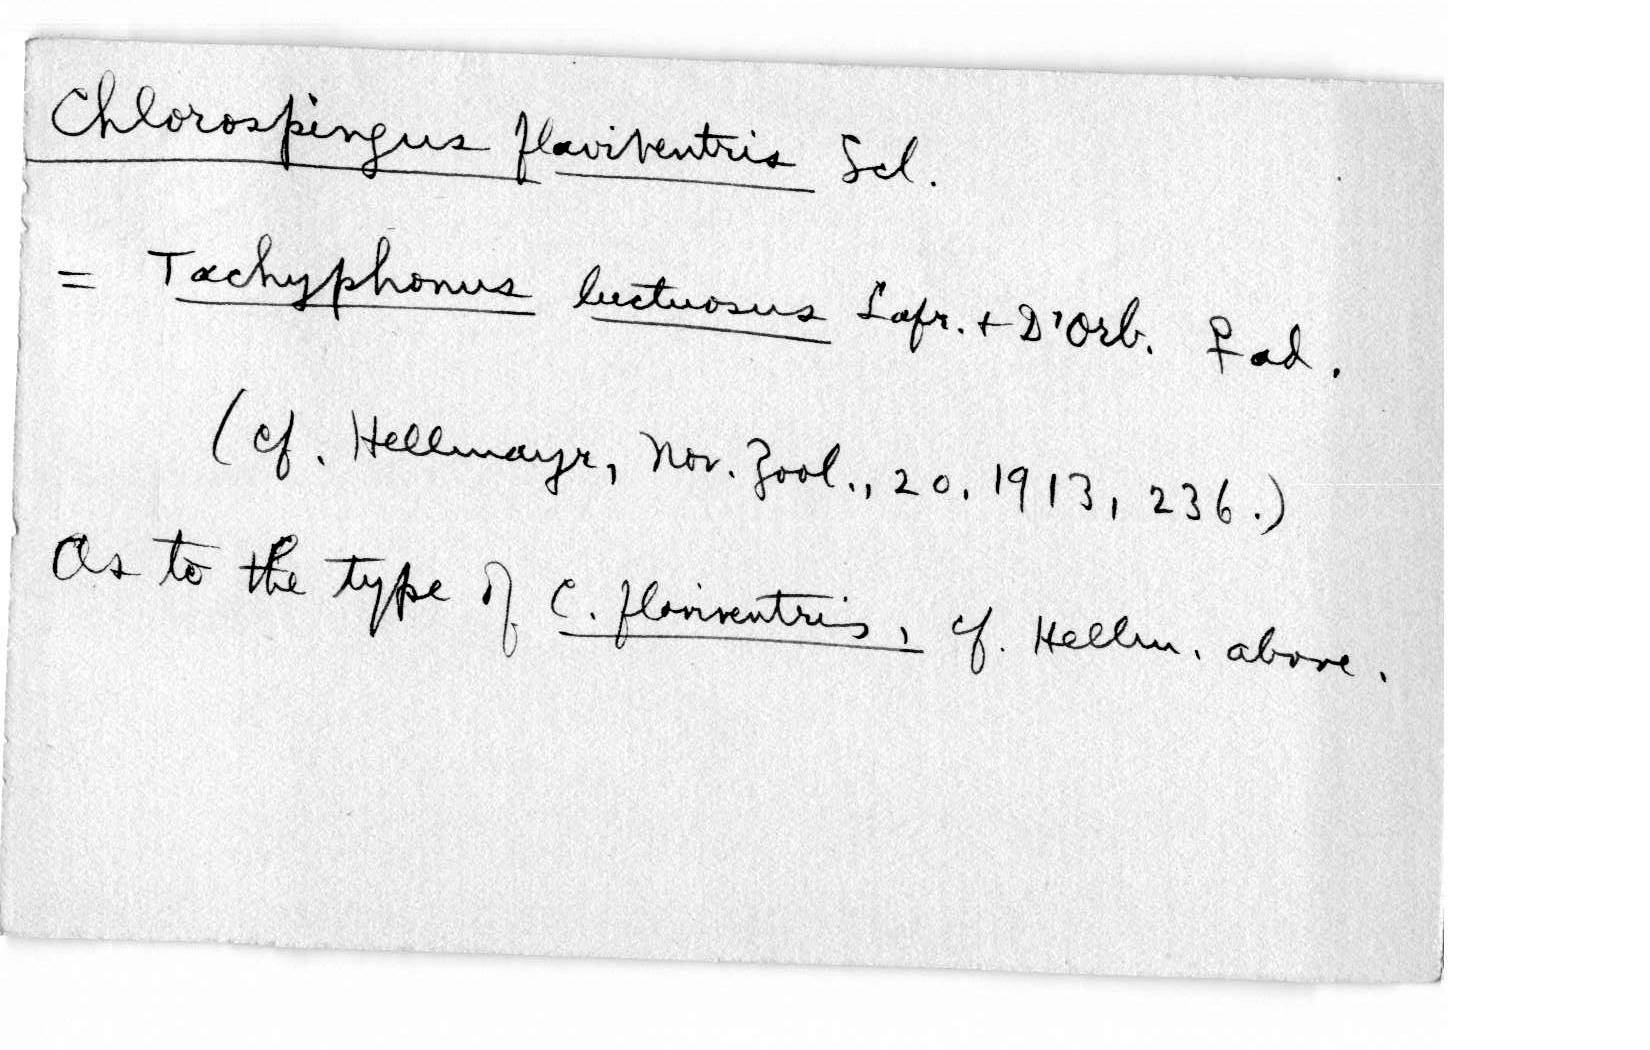 Chlorospingus flaviventris Scl.
= Tachyphonus luctuosus Lafr. + D'Orb. ♀ ad.
(cf. Hellmayr, Nov. Zool., 20, 1913, 236.)
As to the type of C. flaviventris, cf. Hellm. above.